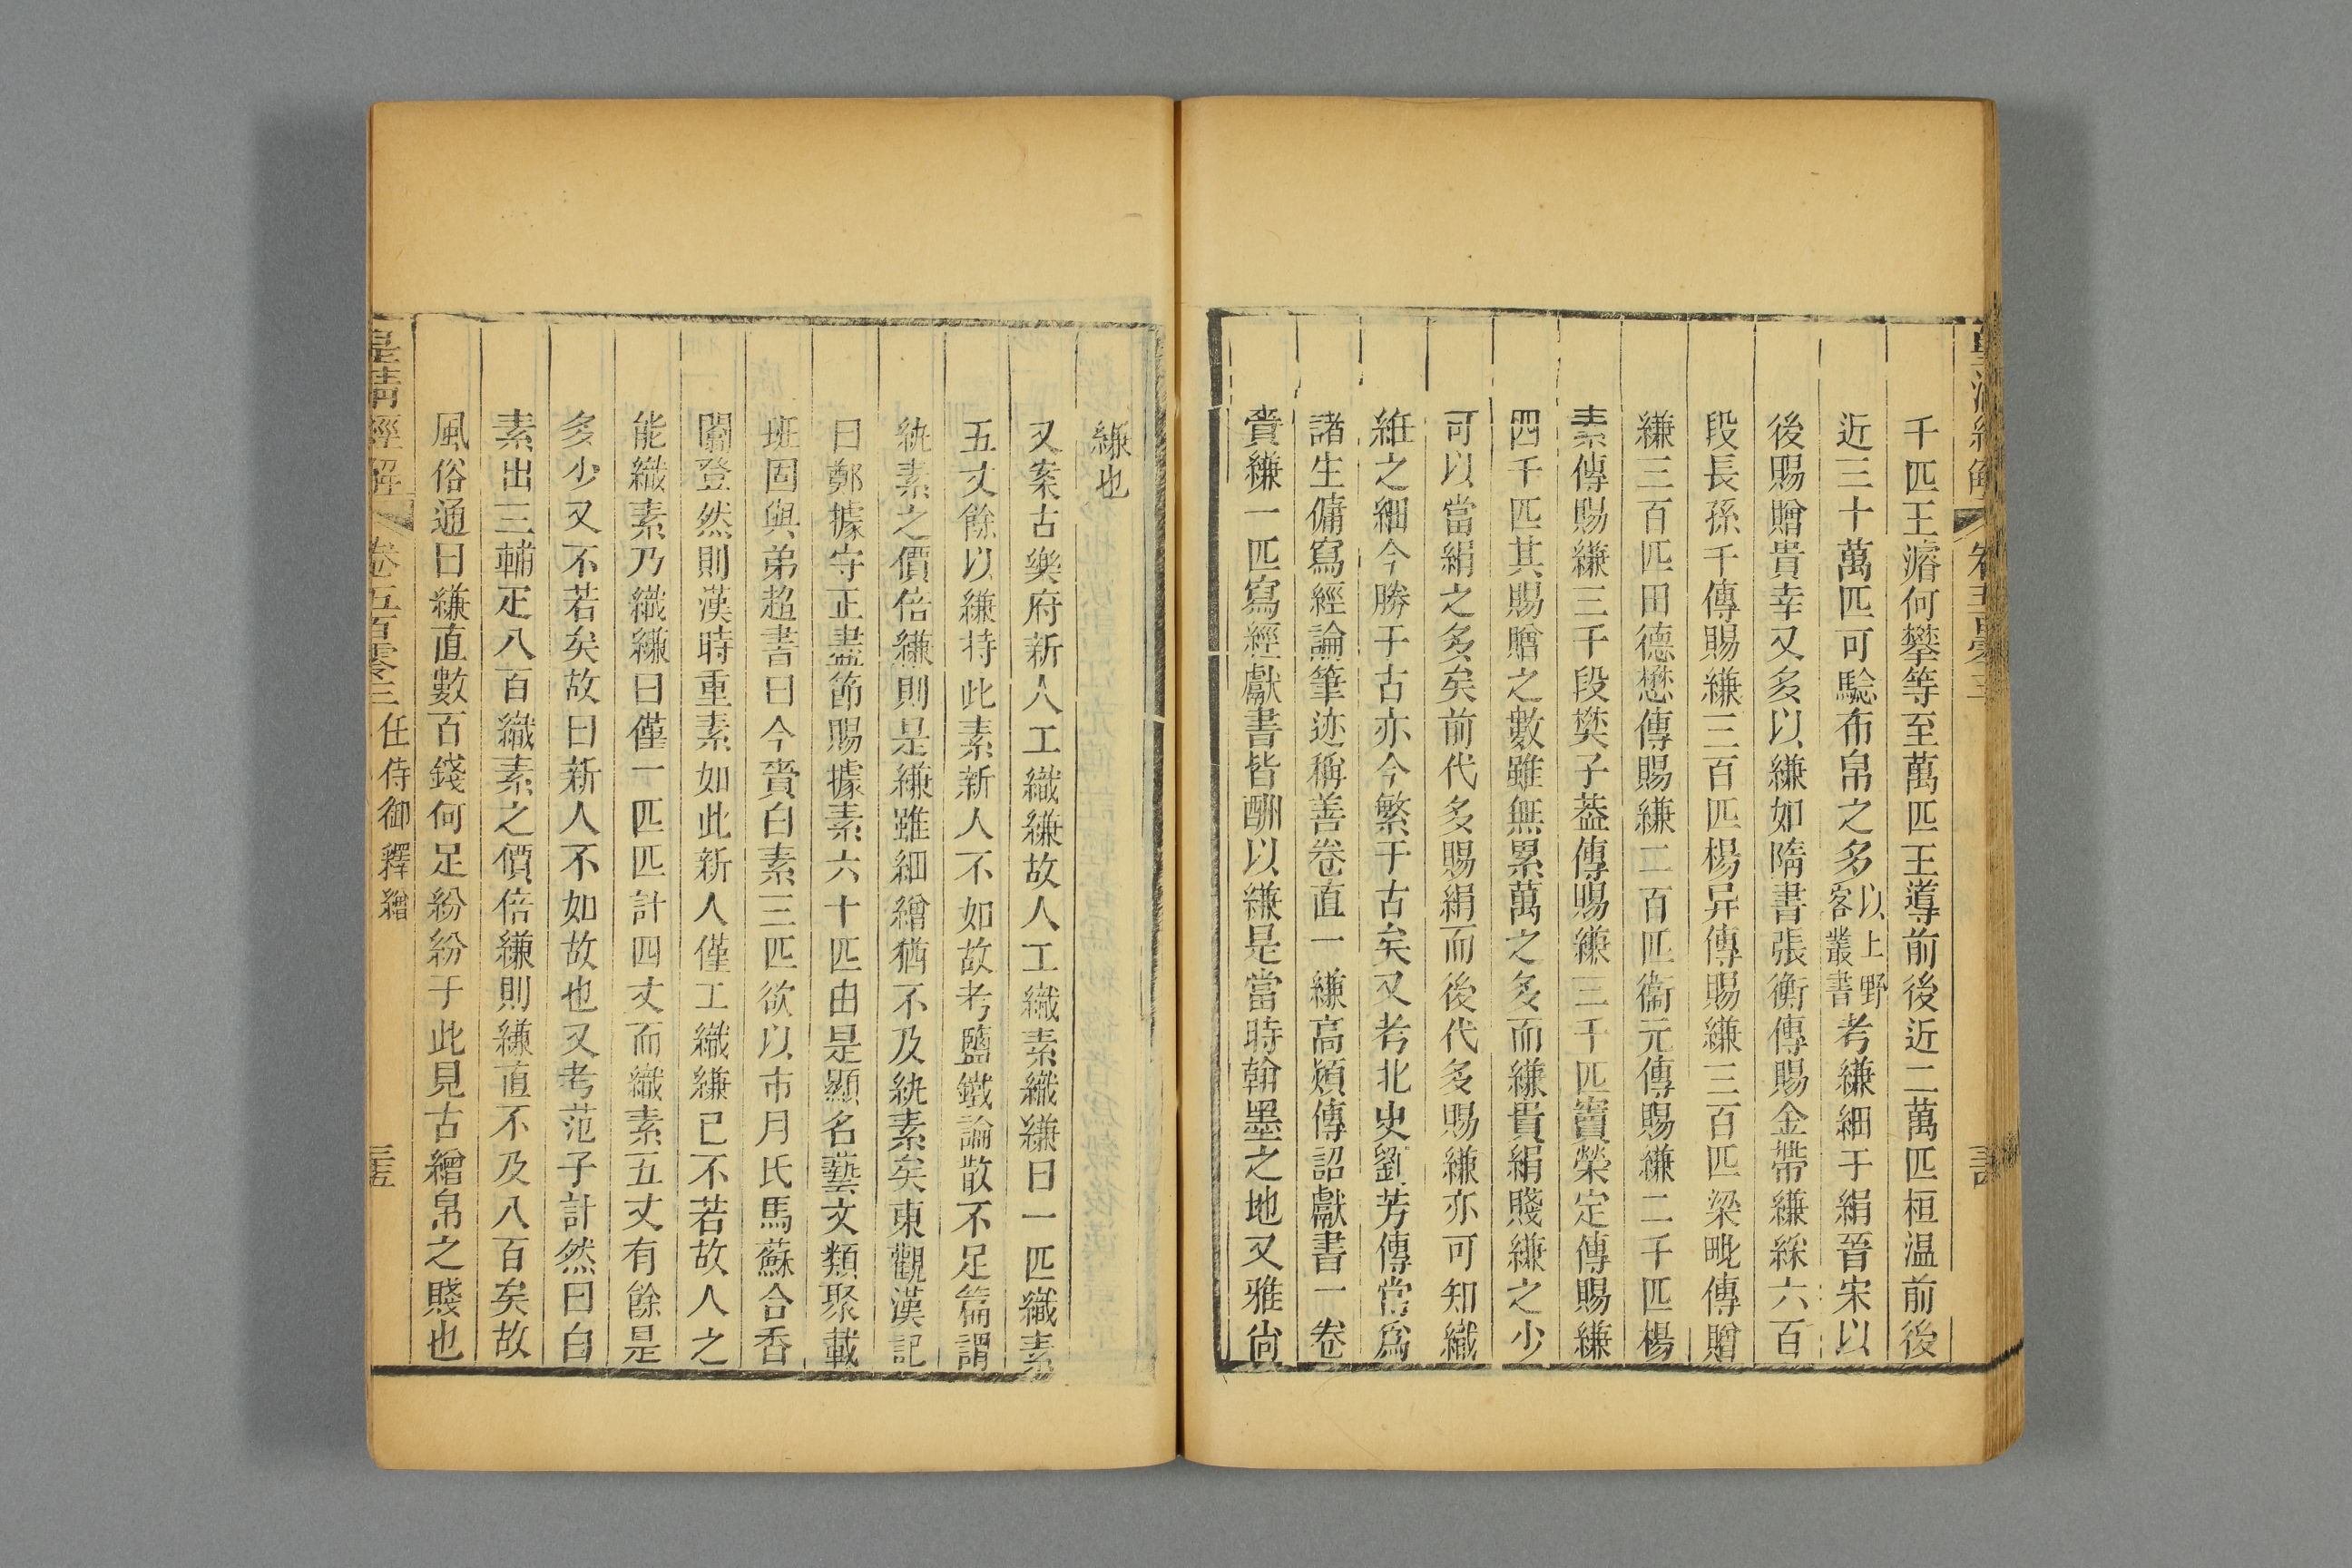 千匹王濬何攀等至萬匹王導前後近二萬匹桓温前後
近三十萬匹可騐布帛之多以上野客叢書考縑細于絹晉宋以
後賜贈貴幸又多以縑如隋書張衡傳賜金帶縑綵六百
段長孫千傳賜縑三百匹楊异傳賜縑三百匹梁毗傳贈
縑三百匹田德懋傳賜縑二百匹衞元傳賜縑二千匹楊
素傳賜縑三千段樊子葢傳賜縑三千匹竇榮定傳賜縑
四千匹其賜贈之數雖無累萬之多而縑貴絹賤縑之少
可以當絹之多矣前代多賜絹而後代多賜縑亦可知織
絍之細今勝于古亦今繁于古矣又考北史劉芳傳常爲
諸生傭寫經論筆迹稱善卷直一縑高熲傳詔獻書一卷
賚縑一匹寫經獻書皆酬以縑是當時翰墨之地又雅尙
縑也
又案古樂府新人工織縑故人工織素織縑日一匹織素
五丈餘以縑持此素新人不如故考鹽鐵論散不足篇謂
紈素之價倍縑則是縑雖細繒猶不及紈素矣東觀漢記
曰鄭據守正盡節賜據素六十匹由是顯名藝文類聚載
班固與弟超書曰今賚白素三匹欲以市月氏馬蘇合香
闟登然則漢時重素如此新人僅工織縑已不若故人之
能織素乃織縑日僅一匹匹計四丈而織素五丈有餘是
多少又不若矣故曰新人不如故也又考范子計然曰白
素出三輔疋八百織素之價倍縑則縑直不及八百矣故
風俗通曰縑直數百錢何足紛紛于此見古繒帛之賤也
皇清經解 卷五百零三 任侍御釋繒 三五